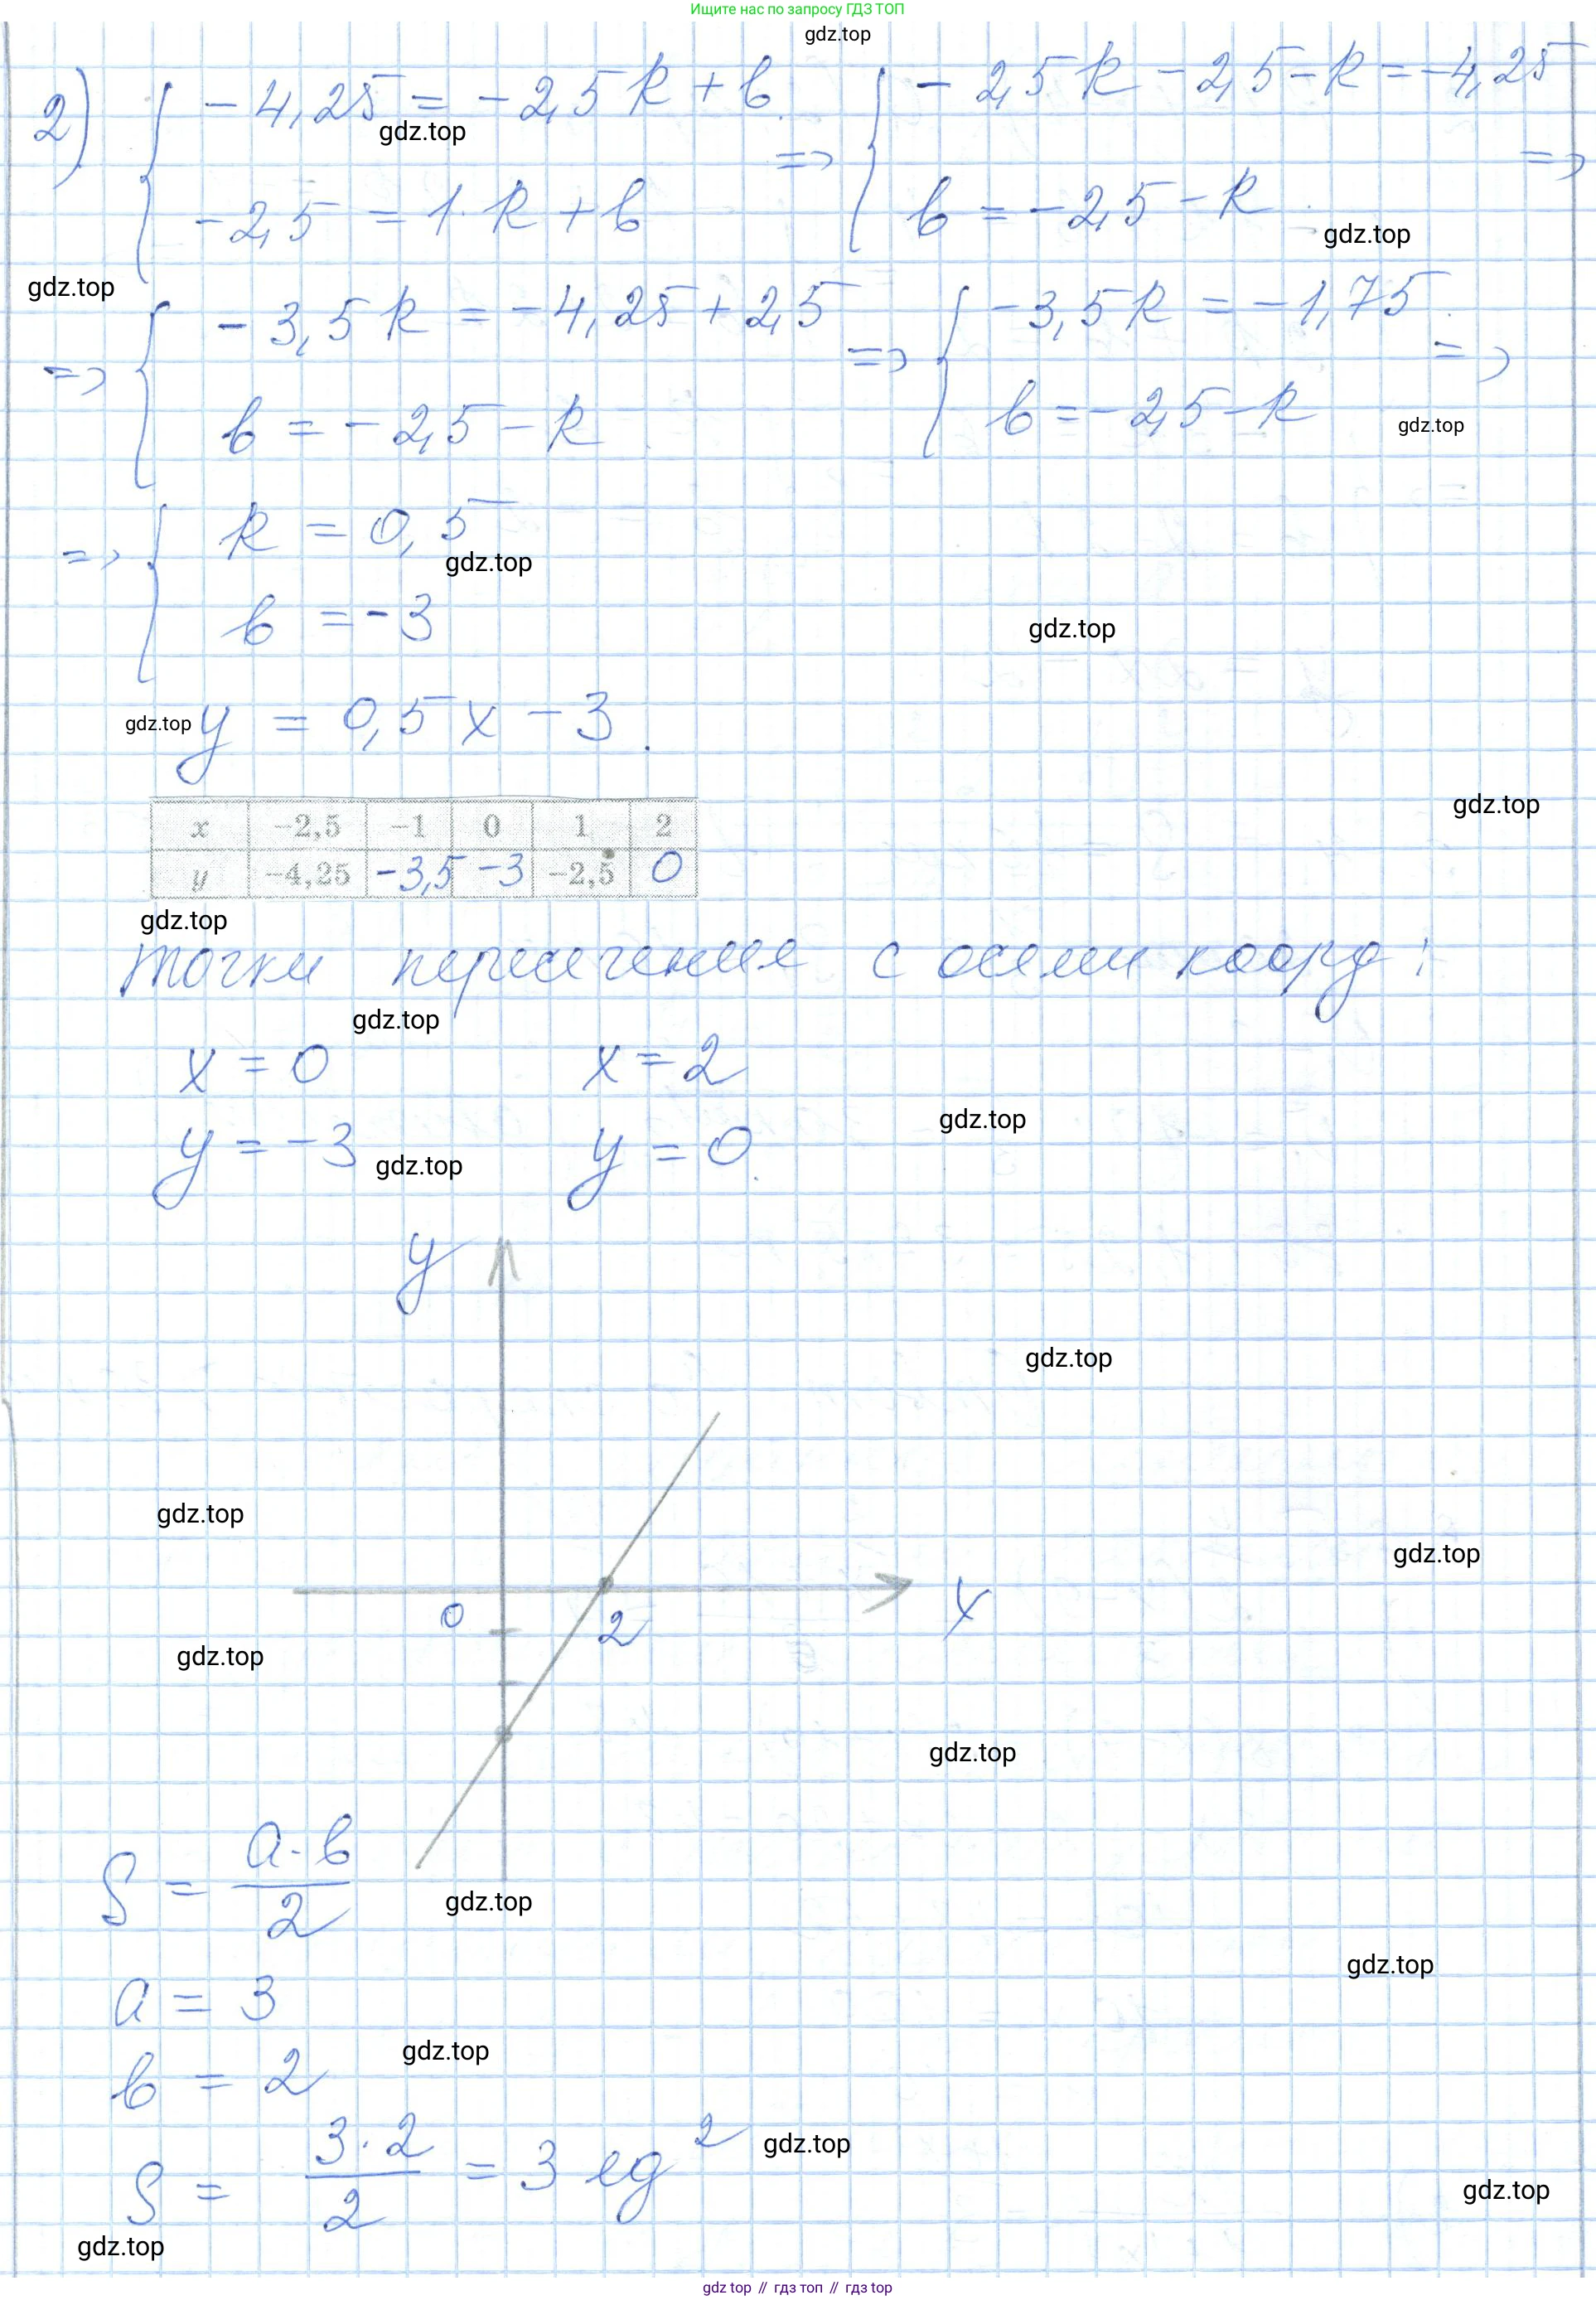 Ищите нас по запросу ГДЗ ТОП
gdz.top
2) { -4,25 = -2,5k + b => { -2,5k - 2,5 - k = -4,25 =>
gdz.top
-2,5 = 1·k + b b = -2,5 - k
gdz.top
gdz.top
=> { -3,5k = -4,25 + 2,5 => { -3,5k = -1,75 =>
b = -2,5 - k b = -2,5 - k
gdz.top
=> { k = 0,5
gdz.top
b = -3
gdz.top
gdz.top y = 0,5x - 3.
gdz.top
x -2,5 -1 0 1 2
y -4,25 -3,5 -3 -2,5 0
gdz.top
точки пересечение с осями коорд:
gdz.top
x = 0 x = 2
gdz.top
y = -3 y = 0.
gdz.top
y
gdz.top
gdz.top
gdz.top
0 2 x
gdz.top
gdz.top
S = a·b/2
gdz.top
gdz.top
a = 3
gdz.top
b = 2
gdz.top
S = 3·2/2 = 3 ед²
gdz.top
gdz.top
gdz top // гдз топ // гдз top